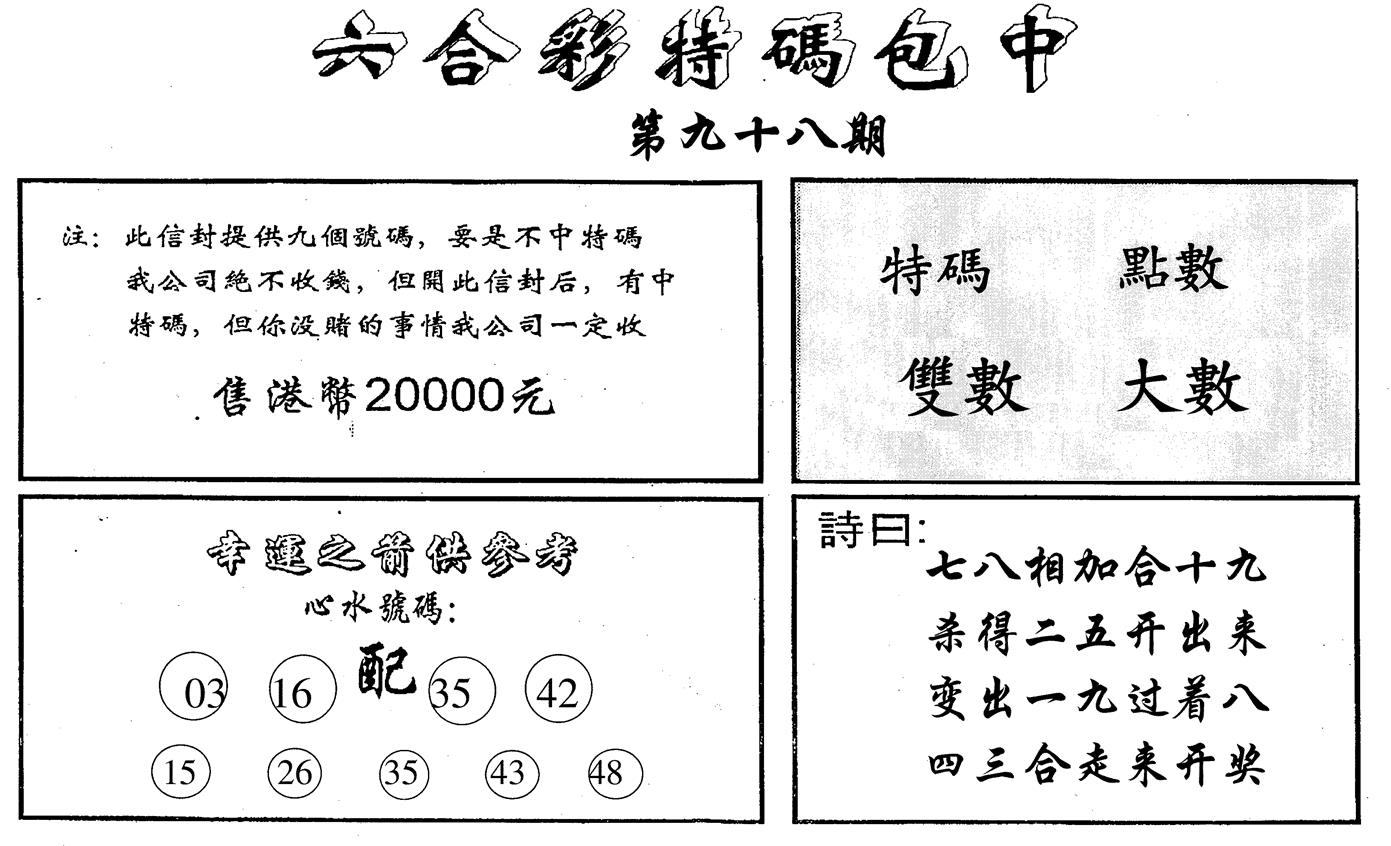 六合彩特碼包中
第九十八期
注：此信封提供九個號碼，要是不中特碼
我公司絕不收錢，但開此信封后，有中
特碼，但你没賭的事情我公司一定收
售港幣20000元
特碼 點數
雙數 大數
幸運之箭供參考
心水號碼：
03 16 配 35 42
15 26 35 43 48
詩曰：
七八相加合十九
杀得二五开出来
变出一九过着八
四三合走来开奖